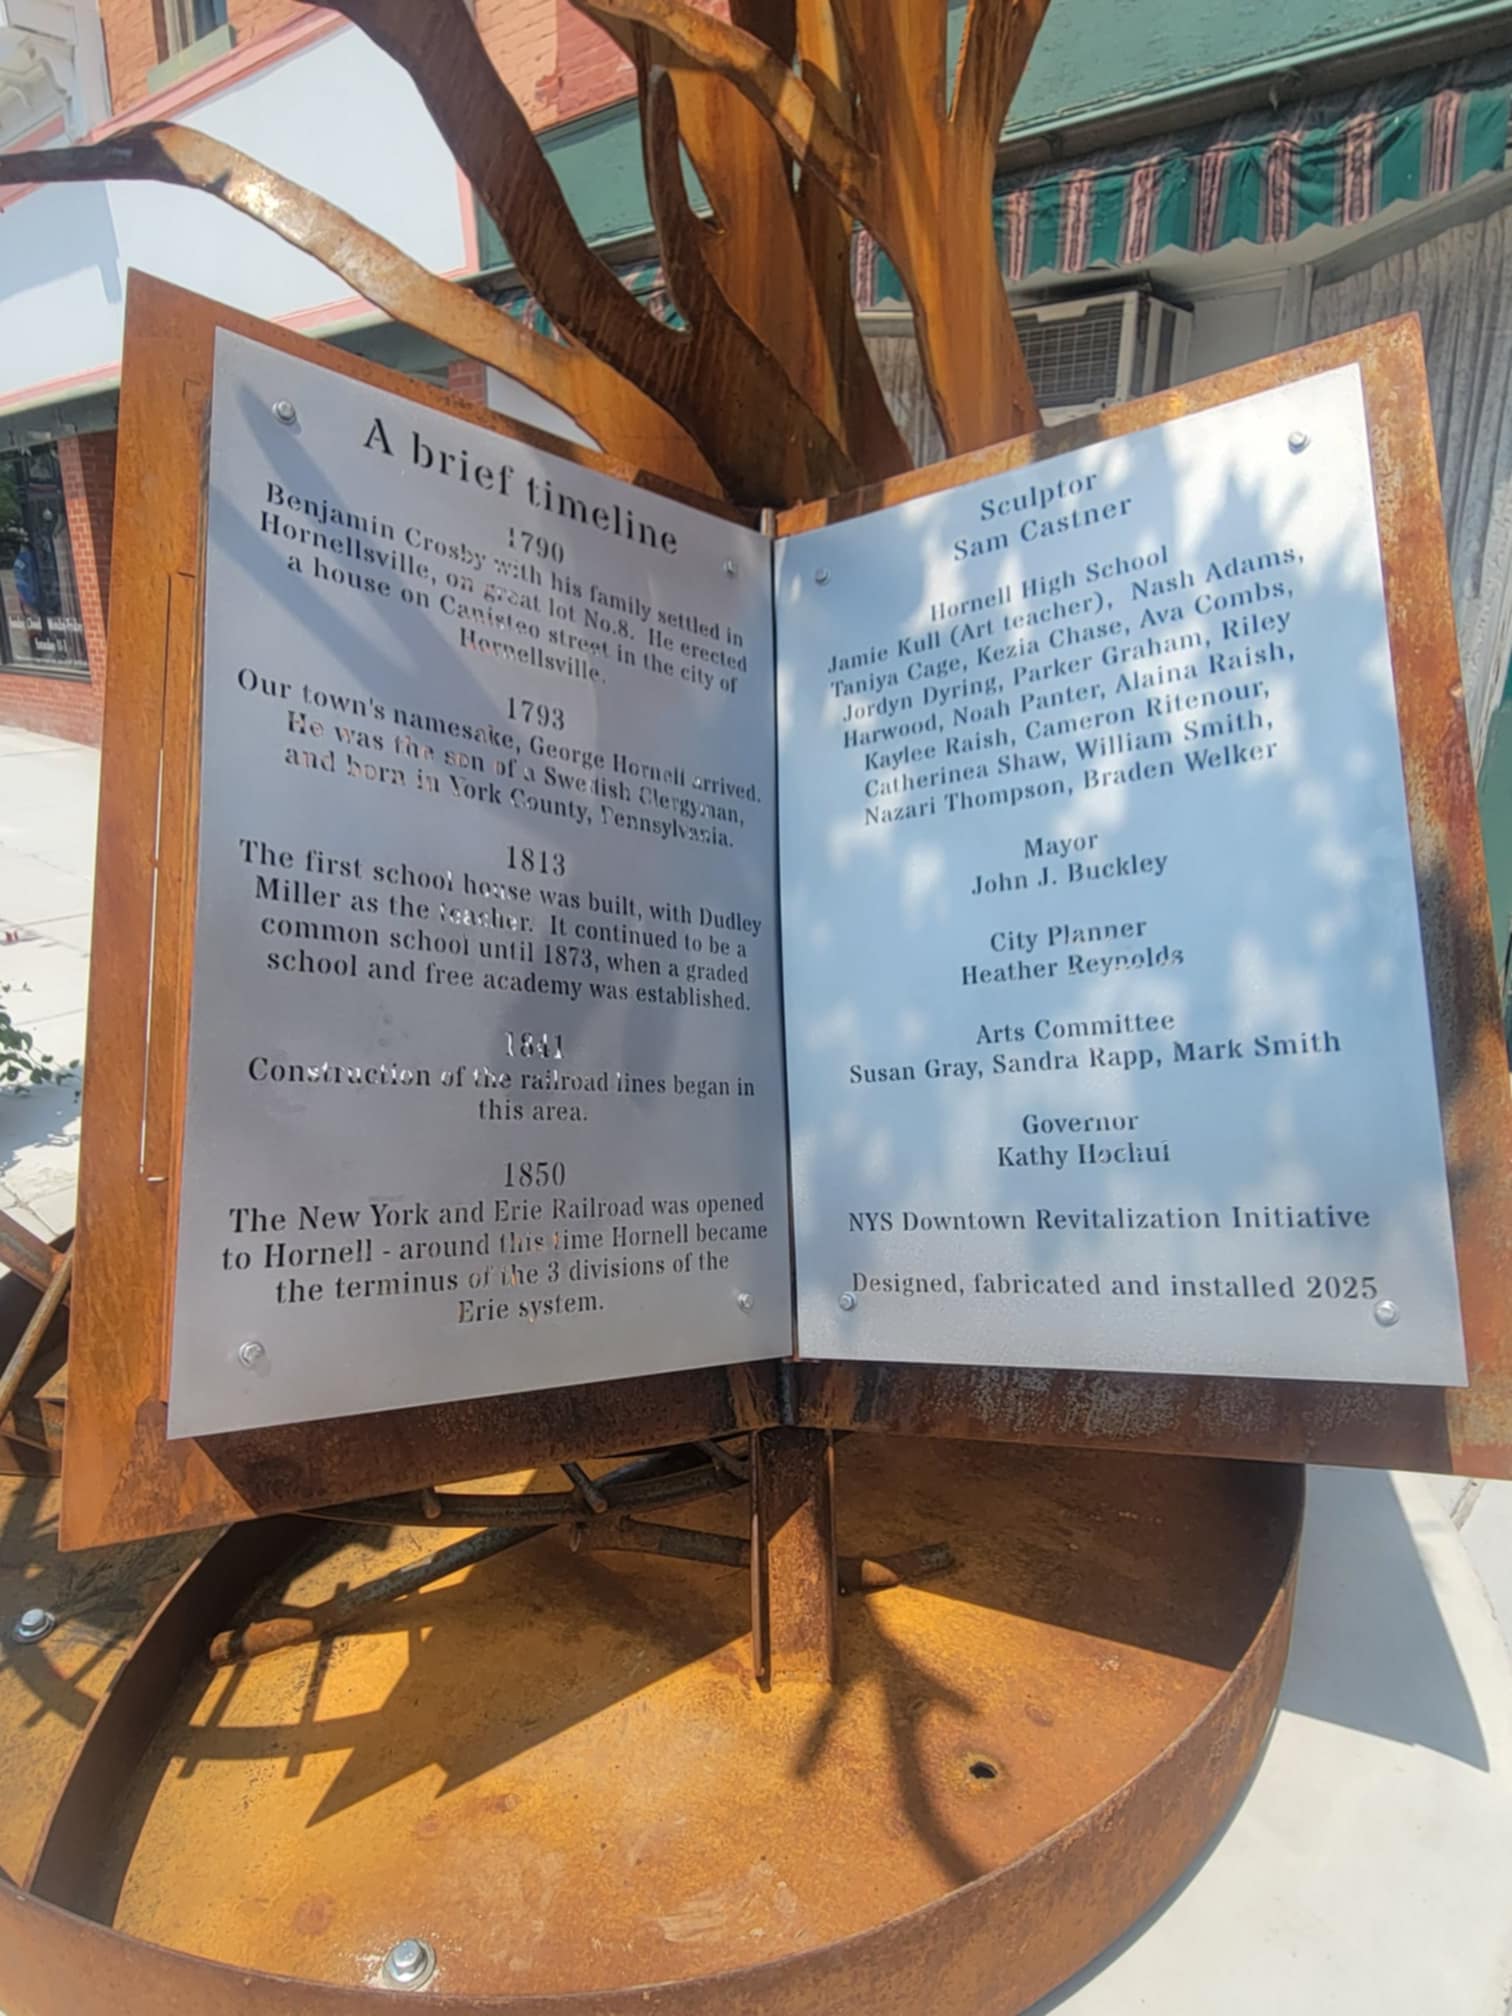 A brief timeline
1790
Benjamin Crosby with his family settled in
Hornellsville, on great lot No.8. He erected
a house on Canisteo street in the city of
Hornellsville.
1793
Our town's namesake, George Hornell arrived.
He was the son of a Swedish Clergyman,
and born in York County, Pennsylvania.
1813
The first school house was built, with Dudley
Miller as the teacher. It continued to be a
common school until 1873, when a graded
school and free academy was established.
1841
Construction of the railroad lines began in
this area.
1850
The New York and Erie Railroad was opened
to Hornell - around this time Hornell became
the terminus of the 3 divisions of the
Erie system.
Sculptor
Sam Castner
Hornell High School
Jamie Kull (Art teacher), Nash Adams,
Taniya Cage, Kezia Chase, Ava Combs,
Jordyn Dyring, Parker Graham, Riley
Harwood, Noah Panter, Alaina Raish,
Kaylee Raish, Cameron Ritenour,
Catherinea Shaw, William Smith,
Nazari Thompson, Braden Welker
Mayor
John J. Buckley
City Planner
Heather Reynolds
Arts Committee
Susan Gray, Sandra Rapp, Mark Smith
Governor
Kathy Hochul
NYS Downtown Revitalization Initiative
Designed, fabricated and installed 2025